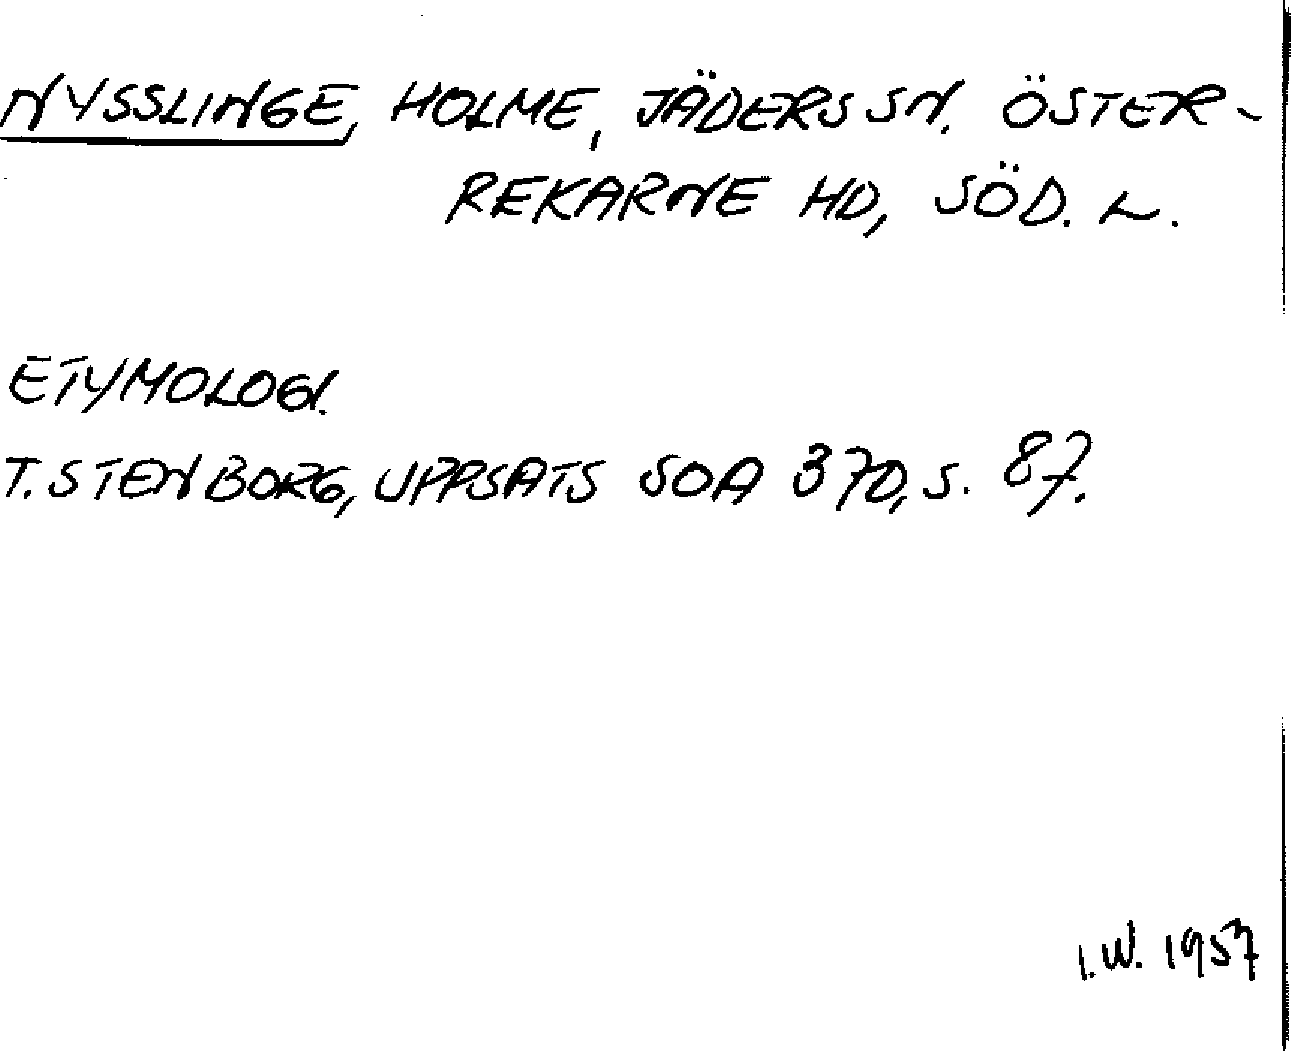 NYSSLINGE, HOLME, JÄDERS SN. ÖSTER-
REKARNE HD, SÖD. L.
ETYMOLOGI.
T. STENBORG, UPPSATS SOA 370, S. 87.
I.W. 1957